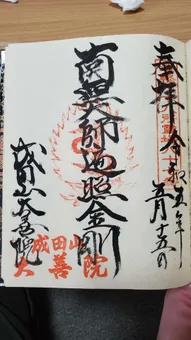 奉拝 令和五年
月十五日
南無大師遍照金剛
成田山大善院
成田山
大善院